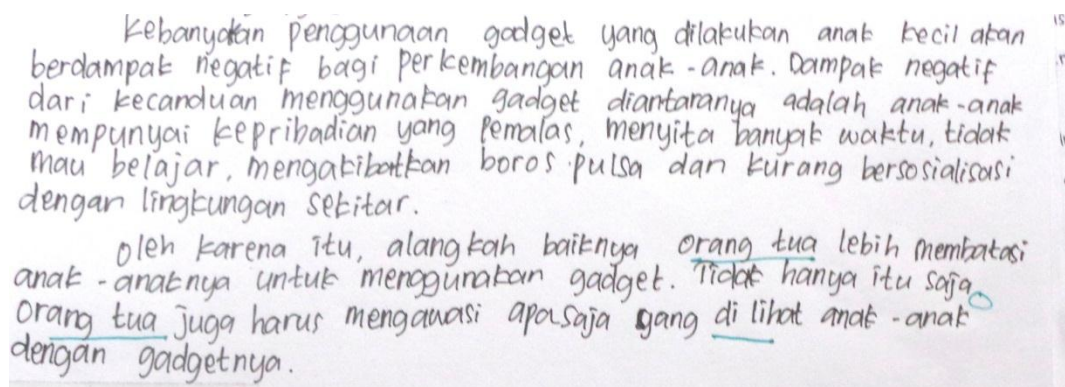 Kebanyakan penggunaan gadget yang dilakukan anak kecil akan
berdampak negatif bagi perkembangan anak-anak. Dampak negatif
dari kecanduan menggunakan gadget diantaranya adalah anak-anak
mempunyai kepribadian yang pemalas, menyita banyak waktu, tidak
mau belajar, mengakibatkan boros pulsa dan kurang bersosialisasi
dengan lingkungan sekitar.
Oleh karena itu, alangkah baiknya orang tua lebih membatasi
anak-anaknya untuk menggunakan gadget. Tidak hanya itu saja
Orang tua juga harus mengawasi apa saja yang di lihat anak-anak
dengan gadgetnya.